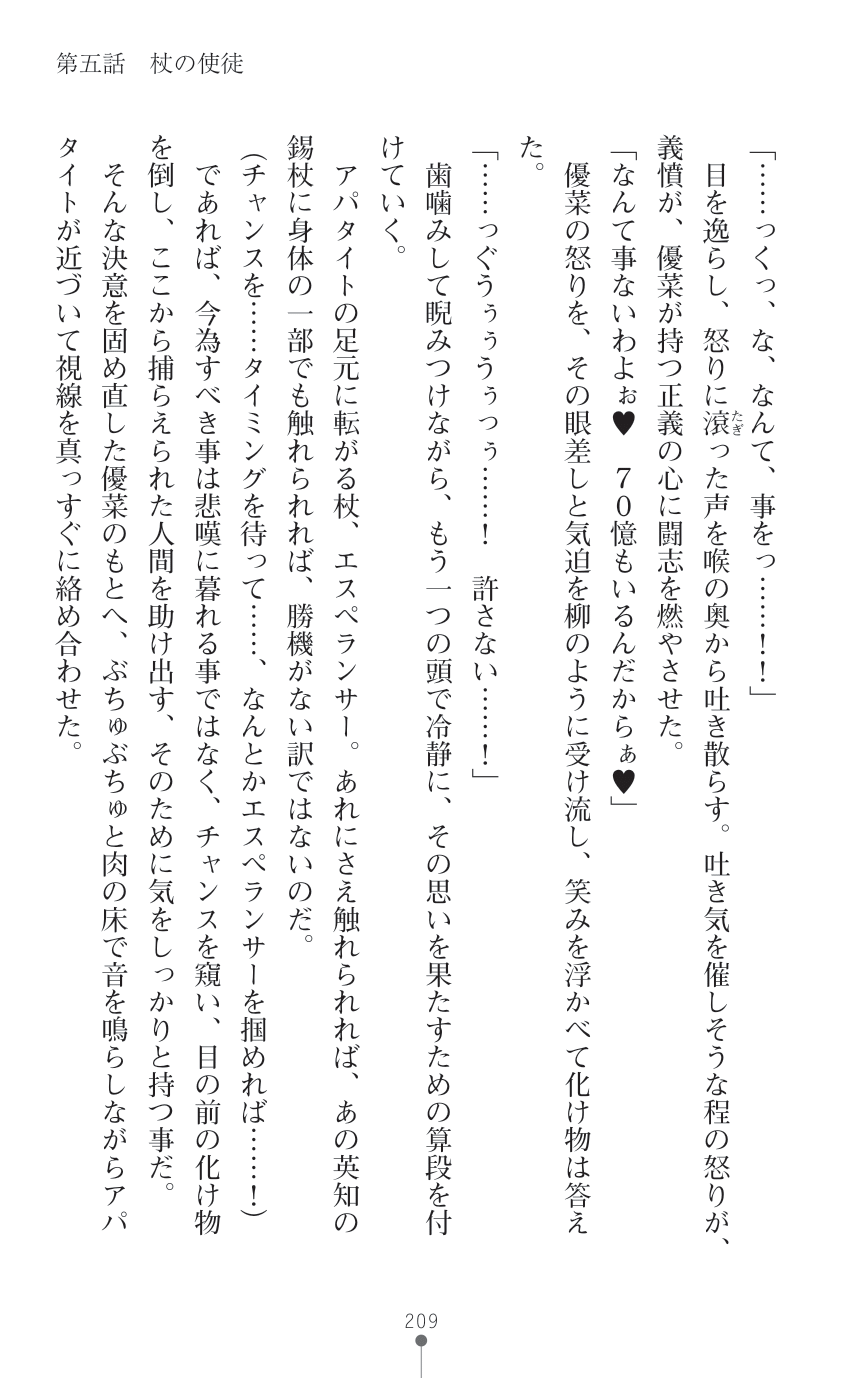 第五話　杖の使徒
「……っくっ、な、なんて、事をっ……！！」
　目を逸らし、怒りに滾った声を喉の奥から吐き散らす。吐き気を催しそうな程の怒りが、
たぎ
義憤が、優菜が持つ正義の心に闘志を燃やさせた。
「なんて事ないわよぉ♥　７０憶もいるんだからぁ♥」
　優菜の怒りを、その眼差しと気迫を柳のように受け流し、笑みを浮かべて化け物は答え
た。
「……っぐうぅぅうぅつぅ……！　許さない……！」
　歯噛みして睨みつけながら、もう一つの頭で冷静に、その思いを果たすための算段を付
けていく。
　アパタイトの足元に転がる杖、エスペランサー。あれにさえ触れられれば、あの英知の
錫杖に身体の一部でも触れられれば、勝機がない訳ではないのだ。
（チャンスを……タイミングを待って……、なんとかエスペランサーを掴めれば……！）
　であれば、今為すべき事は悲嘆に暮れる事ではなく、チャンスを窺い、目の前の化け物
を倒し、ここから捕らえられた人間を助け出す、そのために気をしっかりと持つ事だ。
　そんな決意を固め直した優菜のもとへ、ぶちゅぶちゅと肉の床で音を鳴らしながらアパ
タイトが近づいて視線を真っすぐに絡め合わせた。
209